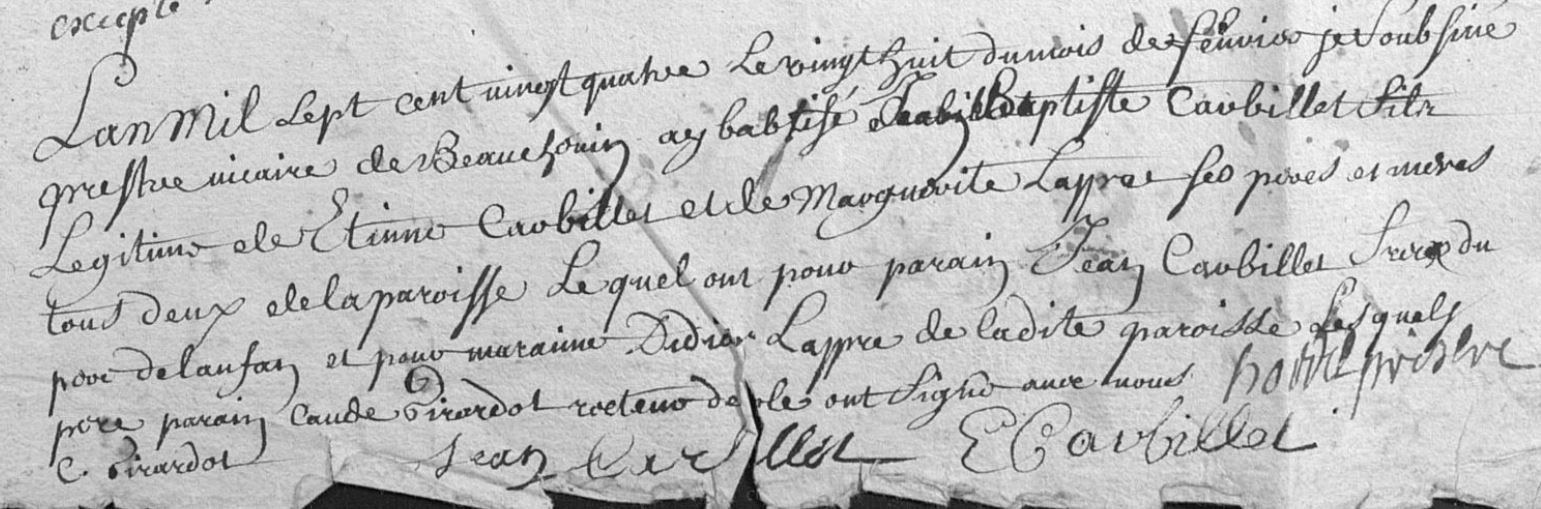 excepte
Lan mil sept cent vingt quatre le vingt huit du mois de feuvier je soubsine
prestre vicaire de Beauchouin ay babtisé Jean Baptiste Carbillet fils
Legitime de Etinne Carbillet et de Marguerite Lappre ses peres et meres
tous deux de la paroisse Lequel ont pour parain Jean Carbillet frere du
pere de lanfan et pour maraine Didier Lappre de ladite paroisse Lesquels
pere parain Caude Girardot recteur de ole ont signe avec nous
C. Girardot Jean Carbillet E Carbillet